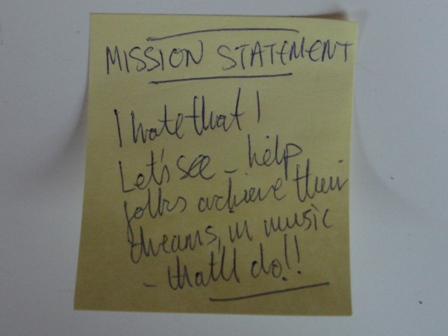 MISSION STATEMENT
I hate that !
Let's see - help
folks achieve their
dreams, in music
- that'll do!!